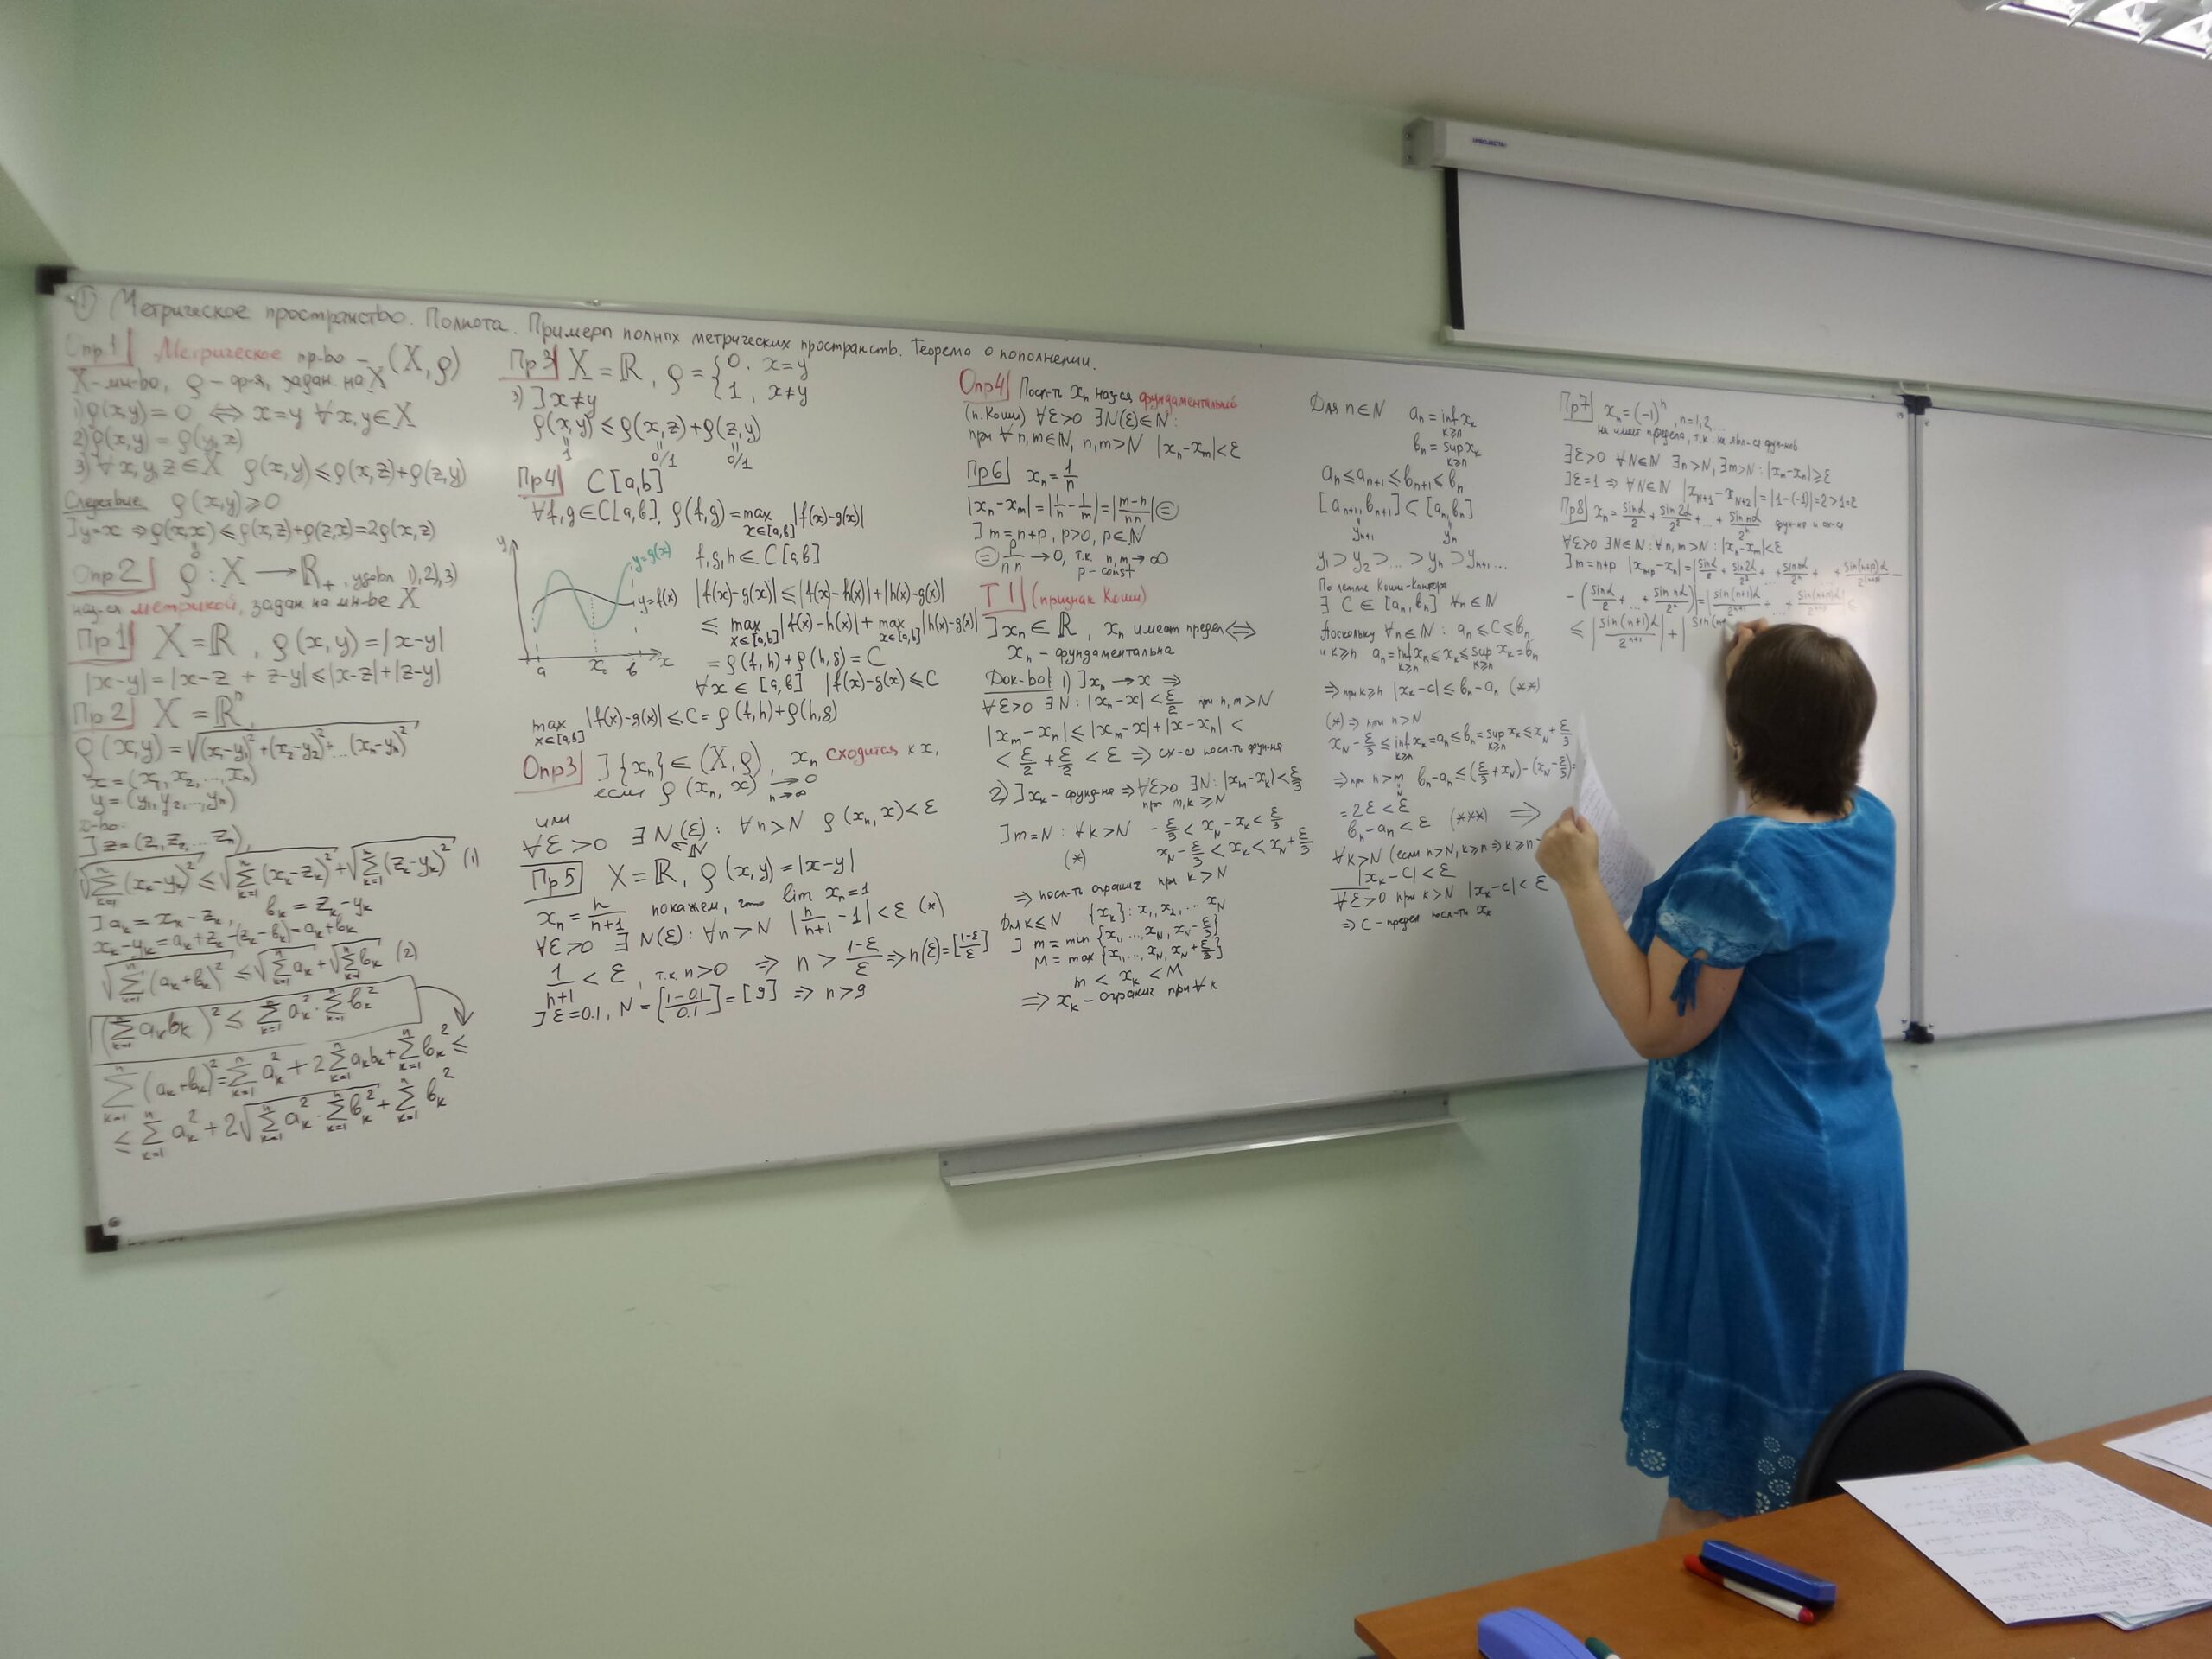 ① Метрическое пространство. Полнота. Примерп полнпх метрических пространств. Теорема о пополнении.
Опр1 Метрическое пр-во – (X, ρ)
X-мн-во, ρ – ф-я, задан. на X
1) ρ(x,y) = 0 ⇔ x=y ∀x,y∈X
2) ρ(x,y) = ρ(y,x)
3) ∀x,y,z∈X ρ(x,y)≤ρ(x,z)+ρ(z,y)
Следствие ρ(x,y)≥0
]y=x ⇒ρ(x,x)≤ρ(x,z)+ρ(z,x)=2ρ(x,z)
0
Опр2 ρ: X → R₊, удовл 1),2),3)
наз-ся метрикой, задан на мн-ве X
Пр1 X=R, ρ(x,y)=|x-y|
|x-y|=|x-z + z-y|≤|x-z|+|z-y|
Пр2 X=Rⁿ,
ρ(x,y)=√((x₁-y₁)²+(x₂-y₂)²+...(xₙ-yₙ)²)
x=(x₁,x₂,...,xₙ)
y=(y₁,y₂,...,yₙ)
Д-во:
]z=(z₁,z₂,...zₙ),
√(∑ₖ₌₁ⁿ(xₖ-yₖ)²) ≤ √(∑ₖ₌₁ⁿ(xₖ-zₖ)²)+√(∑ₖ₌₁ⁿ(zₖ-yₖ)²) (1)
]aₖ=xₖ-zₖ, bₖ=zₖ-yₖ
xₖ-yₖ=aₖ+zₖ-(zₖ-bₖ)=aₖ+bₖ
√(∑ₖ₌₁ⁿ(aₖ+bₖ)²) ≤ √(∑ₖ₌₁ⁿaₖ)+√(∑bₖ) (2)
(∑ₖ₌₁ⁿaₖbₖ)² ≤ ∑ₖ₌₁ⁿaₖ²·∑ₖ₌₁ⁿbₖ²
∑ₖ₌₁ⁿ(aₖ+bₖ)²=∑ₖ₌₁ⁿaₖ²+2∑ₖ₌₁ⁿaₖbₖ+∑ₖ₌₁ⁿbₖ² ≤
≤ ∑ₖ₌₁ⁿaₖ²+2√(∑ₖ₌₁ⁿaₖ²·∑ₖ₌₁ⁿbₖ²)+∑ₖ₌₁ⁿbₖ²
Пр3 X=R, ρ={0, x=y
1, x≠y
3) ]x≠y
ρ(x,y)≤ρ(x,z)+ρ(z,y)
1 0/1 0/1
Пр4 C[a,b]
∀f,g∈C[a,b], ρ(f,g)=max x∈[a,b] |f(x)-g(x)|
y y=g(x) y=f(x) a x₀ b x
f,g,h∈C[a,b]
|f(x)-g(x)|≤|f(x)-h(x)|+|h(x)-g(x)|
≤ max x∈[a,b] |f(x)-h(x)|+max x∈[a,b] |h(x)-g(x)|
=ρ(f,h)+ρ(h,g)=C
∀x∈[a,b] |f(x)-g(x)≤C
max x∈[a,b] |f(x)-g(x)|≤C=ρ(f,h)+ρ(h,g)
Опр3 ]{xₙ}∈(X,ρ), xₙ сходится к x,
если ρ(xₙ,x) → 0 n→∞
или
∀ε>0 ∃N(ε)∈N: ∀n>N ρ(xₙ,x)<ε
Пр5 X=R, ρ(x,y)=|x-y|
xₙ=n/(n+1) покажем, что lim xₙ=1
∀ε>0 ∃N(ε): ∀n>N |n/(n+1)-1|<ε (*)
1/(n+1)<ε, т.к n>0 ⇒ n>(1-ε)/ε ⇒n(ε)=[(1-ε)/ε]
]ε=0.1, N=[(1-0.1)/0.1]=[9] ⇒ n>9
Опр4 Посл-ть xₙ наз-ся фундаментальной
(п.Коши) ∀ε>0 ∃N(ε)∈N:
при ∀n,m∈N, n,m>N |xₙ-xₘ|<ε
Пр6 xₙ=1/n
|xₙ-xₘ|=|1/n-1/m|=|(m-n)/nn| ⊜
]m=n+p, p>0, p∈N
⊜ p/(n n) →0, т.к. n,m→∞
p-const
Т1 (признак Коши)
]xₙ∈R, xₙ имеет предел⇔
xₙ – фундаментальна
Док-во: 1) ]xₙ→x ⇒
∀ε>0 ∃N: |xₙ-x|<ε/2 при n,m>N
|xₘ-xₙ|≤|xₘ-x|+|x-xₙ|<
<ε/2+ε/2<ε ⇒ сх-ся посл-ть фун-на
2) ]xₖ-фунд-на ⇒∀ε>0 ∃N: |xₘ-xₖ|<ε/3
при m,k≥N
]m=N: ∀k>N -ε/3<x_N-xₖ<ε/3
(*) x_N-ε/3<xₖ<x_N+ε/3
⇒ посл-ть огранич при k>N
Для k≤N {xₖ}: x₁,x₂,...x_N
] m=min{x₁,...,x_N,x_N-ε/3}
M=max{x₁,...,x_N,x_N+ε/3}
m<xₖ<M
⇒ xₖ-огранич при ∀k
Для n∈N aₙ=inf xₖ k≥n
bₙ=sup xₖ k≥n
aₙ≤aₙ₊₁≤bₙ₊₁≤bₙ
[aₙ₊₁,bₙ₊₁]⊂[aₙ,bₙ]
yₙ₊₁ yₙ
y₁⊃y₂⊃...⊃yₙ⊃yₙ₊₁...
По лемме Коши-Кантора
∃ C∈[aₙ,bₙ] ∀n∈N
Поскольку ∀n∈N: aₙ≤C≤bₙ
и k≥n aₙ=inf xₖ≤xₖ≤sup xₖ=bₙ
k≥n k≥n
⇒при k≥n |xₖ-c|≤bₙ-aₙ (**)
(*)⇒ при n>N
x_N-ε/3≤inf xₖ=aₙ≤bₙ=sup xₖ≤x_N+ε/3
k≥n k≥n
⇒при n>m bₙ-aₙ≤(ε/3+x_N)-(x_N-ε/3)=
=2ε<ε
bₙ-aₙ<ε (***) ⇒
∀k>N (если n>N, k≥n⇒k≥n
|xₖ-c|<ε
∀ε>0 при k>N |xₖ-c|<ε
⇒ C-предел посл-ти xₖ
Пр7 xₙ=(-1)ⁿ, n=1,2,...
не имеет предела, т.к. не явл-ся фун-ной
∃ε>0 ∀N∈N ∃n>N, ∃m>N: |xₙ-xₙ|≥ε
]ε=1 ⇒ ∀N∈N |x_N+1-x_N+2|=|1-(-1)|=2>1=ε
Пр8 xₙ=sinα/2+sin2α/2²+...+sin nα/2ⁿ
∀ε>0 ∃N∈N: ∀n,m>N: |xₙ-xₘ|<ε
]m=n+p |xₙ₊ₚ-xₙ|=|sinα/2+sin2α/2²+...+sin nα/2ⁿ+...+sin(n+p)α/2ⁿ⁺ᵖ-
-(sinα/2+...+sin nα/2ⁿ)|=|sin(n+1)α/2ⁿ⁺¹+...+sin(n+p)α
≤|sin(n+1)α/2ⁿ⁺¹|+|sin(n+
PROJECTA